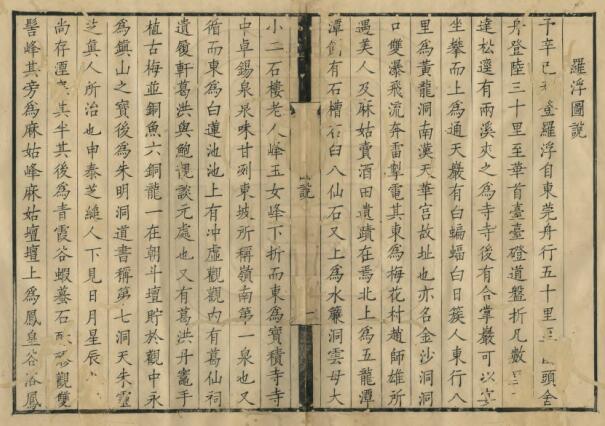 羅浮圖說
予辛巳登羅浮自東莞舟行五十里至頭舍
舟登陸三十里至華首臺臺磴道盤折凡數
達松邃有兩溪夾之為寺寺後有合掌巖可以宴
坐攀而上為通天巖有白蝙蝠白日簇人東行八
里為黃龍洞南漢天華宮故址也亦名金沙洞洞
口雙瀑飛流奔雷掣電其東為梅花村趙師雄所
遇美人及麻姑賣酒田遺蹟在焉北上為五龍潭
潭側有石槽石臼八仙石又上為水簾洞雲母大
小二石樓老人峰玉女峰下折而東為寶積寺寺
中卓錫泉泉味甘冽東坡所稱嶺南第一泉也又
循而東為白蓮池池上有冲虛觀觀內有葛仙祠
遺履軒葛洪與鮑靚談元處也又有葛洪丹竈手
植古梅並銅魚六銅龍一在朝斗壇貯於觀中永
為鎮山之寶後為朱明洞道書稱第七洞天朱靈
芝真人所治也申泰芝縋人下見日月星辰
尚存湮其半其後為青霞谷蝦蟇石酥醪觀雙
髻峰其旁為麻姑峰麻姑壇壇上為鳳皇谷浴鳳
山說
一